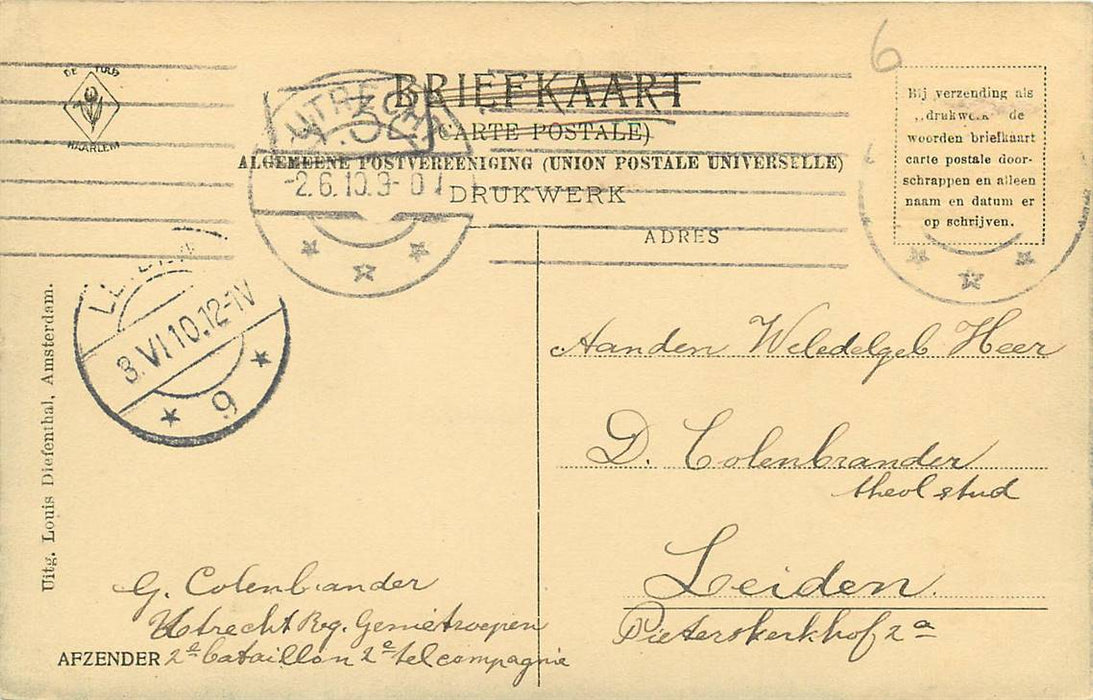 6
DE TULP
HAARLEM
BRIEFKAART
(CARTE POSTALE)
ALGEMEENE POSTVEREENIGING (UNION POSTALE UNIVERSELLE)
DRUKWERK
UTRECHT
-2.6.10.9-
Bij verzending als
„drukwerk" de
woorden briefkaart
carte postale door-
schrappen en alleen
naam en datum er
op schrijven.
ADRES
LEIDEN
3.VI.10.12-1V
9
Uitg. Louis Diefenthal, Amsterdam.
Aan den Weledelgeb Heer
D. Colenbrander
theol stud
Leiden.
Pieterskerkhof 2a
G. Colenbrander
Utrecht Reg. Genietroepen
AFZENDER 2e bataillon 2e telcompagnie